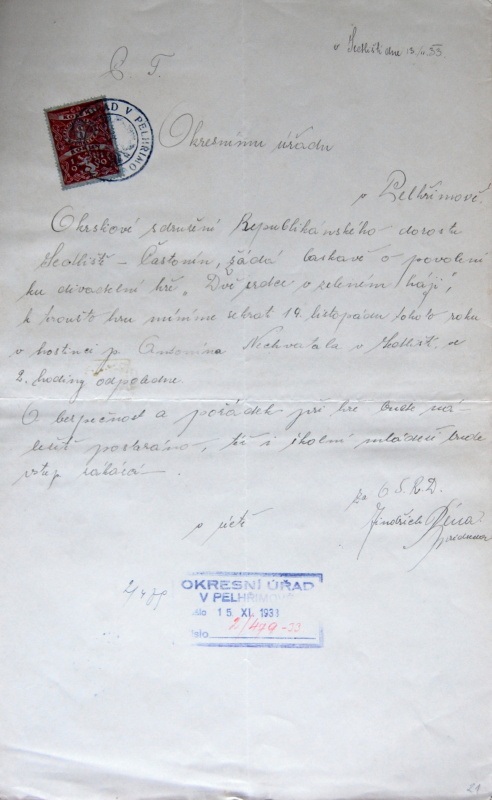 v Sedlišti dne
P. T.
Okresnímu úřadu
v Pelhřimově.
Okrskové sdružení Republikánského dorostu
Sedliště – Častonín, žádá laskavě o povolení
ku divadelní hře „Dvě srdce v zeleném háji",
kteroužto hru míníme sehrat 14. listopadu tohoto roku
v hostinci p. Antonína Nechvátala v Sedlišti ve
2. hodiny odpoledne.
O bezpečnost a pořádek při hře bude ná-
ležitě postaráno, též i školní mládeži bude
vstup zakázán.
v úctě
za O. S. R. D.
Jindřich
OKRESNÍ ÚŘAD
V PELHŘIMOVĚ
došlo 15. XI. 1933
číslo 2/479-33
21